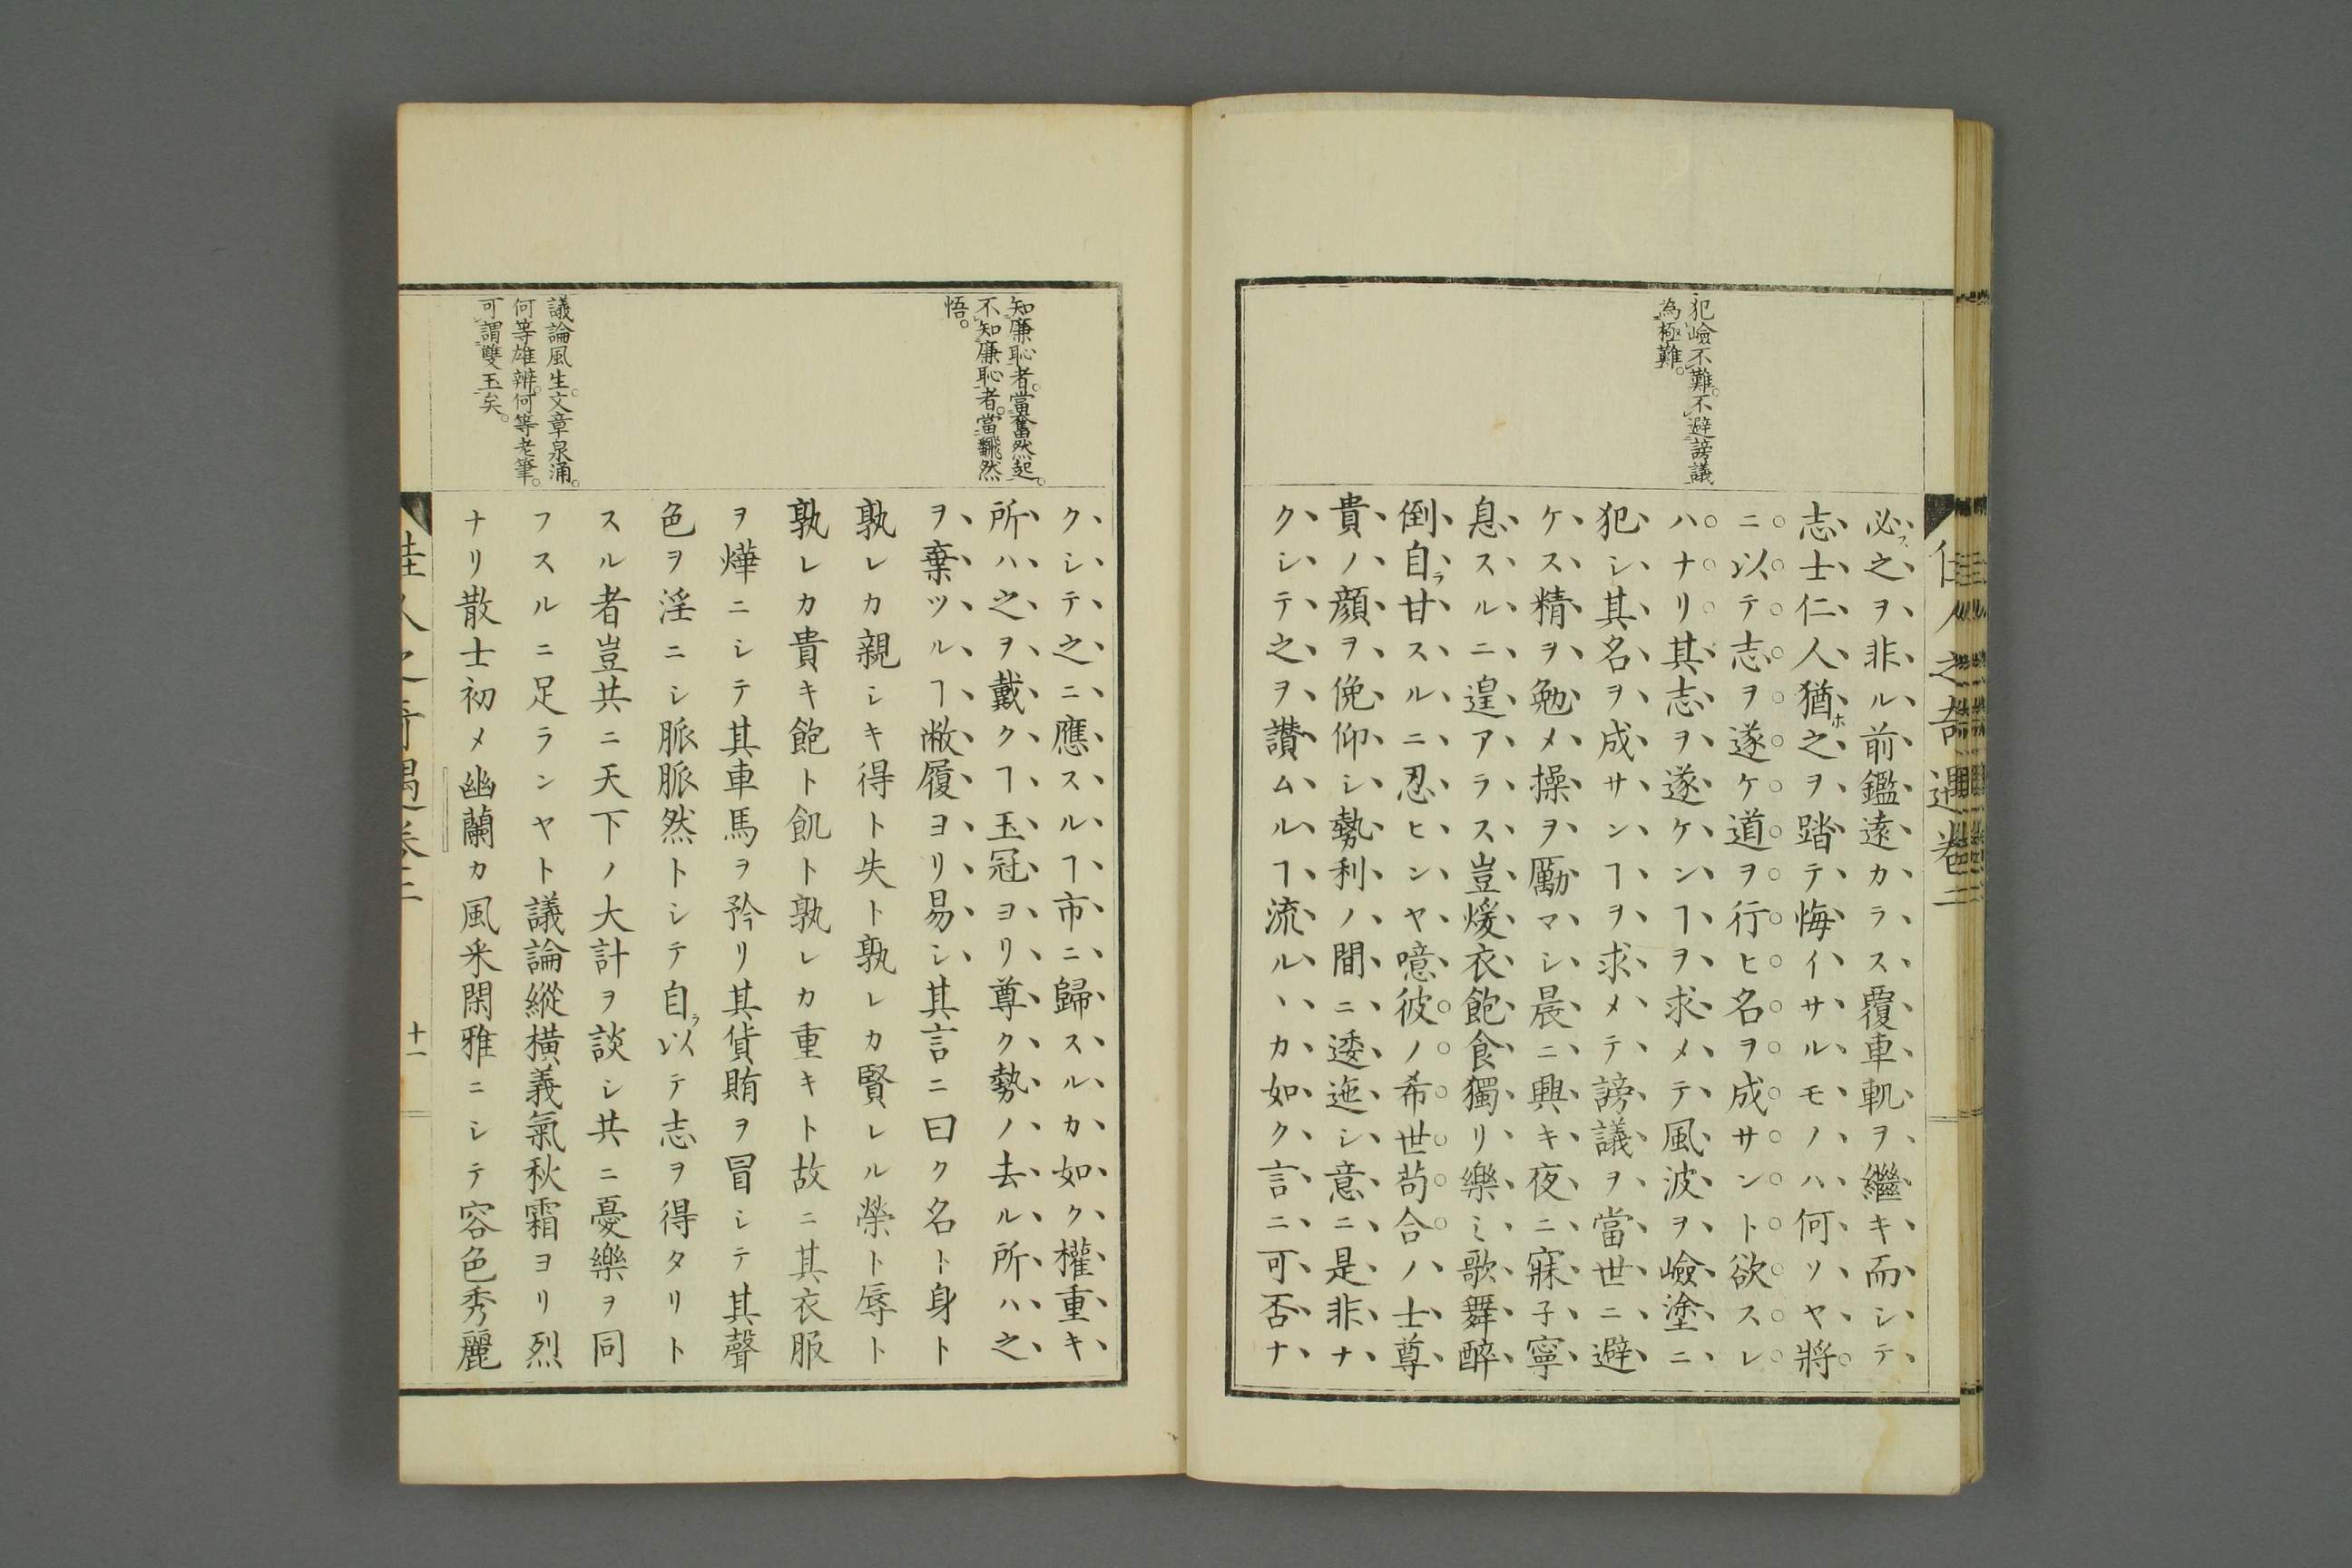 佳人之奇遇卷二
犯嶮不難。不避謗議
為極難。
必ス之ヲ非ル前鑑遠カラス覆車軌ヲ繼キ而シテ
志士仁人猶ホ之ヲ踏テ悔イサルモノハ何ソヤ將
ニ以テ志ヲ遂ケ道ヲ行ヒ名ヲ成サント欲スレ
ハナリ其志ヲ遂ケンヿヲ求メテ風波ヲ嶮塗ニ
犯シ其名ヲ成サンヿヲ求メテ謗議ヲ當世ニ避
ケス精ヲ勉メ操ヲ勵マシ晨ニ興キ夜ニ寐子寧
息スルニ遑アラス豈煖衣飽食獨リ樂ミ歌舞醉
倒自ラ甘スルニ忍ヒンヤ噫彼ノ希世苟合ノ士尊
貴ノ顏ヲ俛仰シ勢利ノ間ニ逶迤シ意ニ是非ナ
クシテ之ヲ讚ムルヿ流ルヽカ如ク言ニ可否ナ
知廉恥者。當奮然起。
不知廉恥者。當飜然
悟。
議論風生。文章泉涌。
何等雄辨。何等老筆。
可謂雙玉矣。
クシテ之ニ應スルヿ市ニ歸スルカ如ク權重キ
所ハ之ヲ戴クヿ玉冠ヨリ尊ク勢ノ去ル所ハ之
ヲ棄ツルヿ敝履ヨリ易シ其言ニ曰ク名ト身ト
孰レカ親シキ得ト失ト孰レカ賢レル榮ト辱ト
孰レカ貴キ飽ト飢ト孰レカ重キト故ニ其衣服
ヲ燁ニシテ其車馬ヲ矜リ其貨賄ヲ冒シテ其聲
色ヲ淫ニシ脈脈然トシテ自ラ以テ志ヲ得タリト
スル者豈共ニ天下ノ大計ヲ談シ共ニ憂樂ヲ同
フスルニ足ランヤト議論縱横義氣秋霜ヨリ烈
ナリ散士初メ幽蘭カ風采閑雅ニシテ容色秀麗
佳人之奇遇卷二
十一